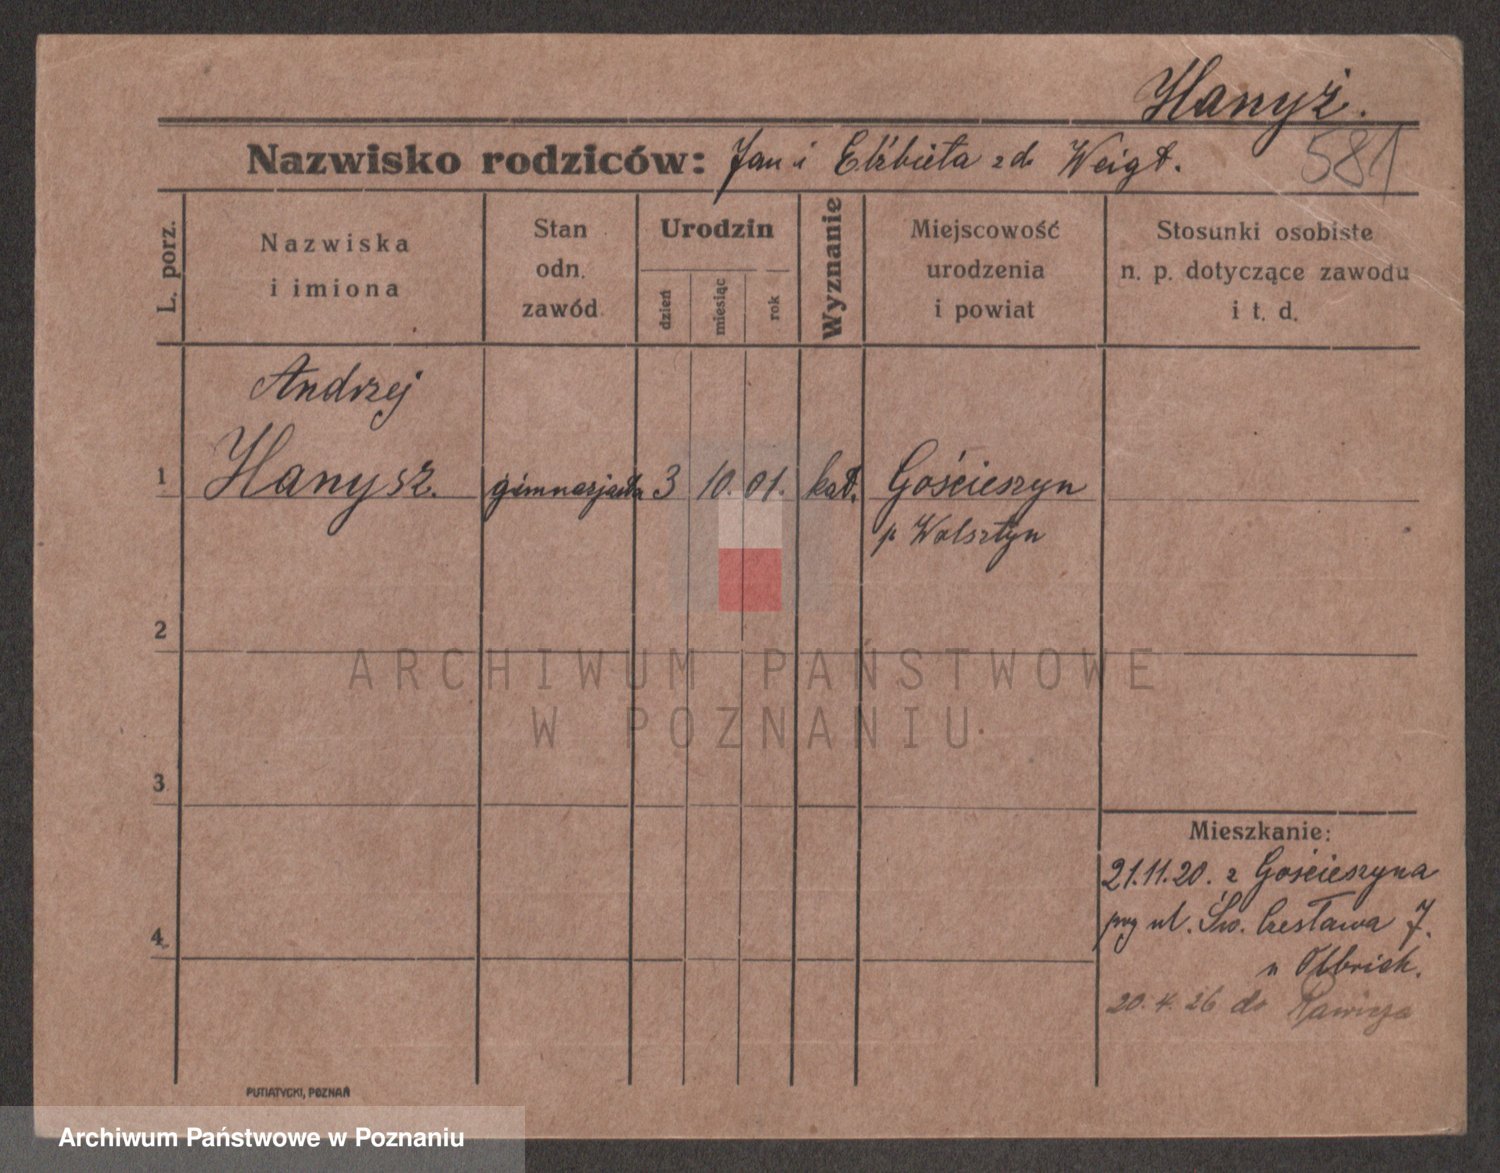 Hanyż.
581
Nazwisko rodziców: Jan i Elżbieta zd. Weigt.
L. porz.
Nazwiska
i imiona
Stan
odn.
zawód
Urodzin
dzień
miesiąc
rok
Wyznanie
Miejscowość
urodzenia
i powiat
Stosunki osobiste
n. p. dotyczące zawodu
i t. d.
Andrzej
1 Hanysz. gimnazjasta 3 10. 01. kat. Gościeszyn
p. Wolsztyn
2
3
4
ARCHIWUM PAŃSTWOWE
W POZNANIU
Mieszkanie:
21.11.20. z Gościeszyna
przy ul. Św. Czesława 7.
u Olbrich.
20.4.26 do Rawicza
PUTIATYCKI, POZNAŃ
Archiwum Państwowe w Poznaniu